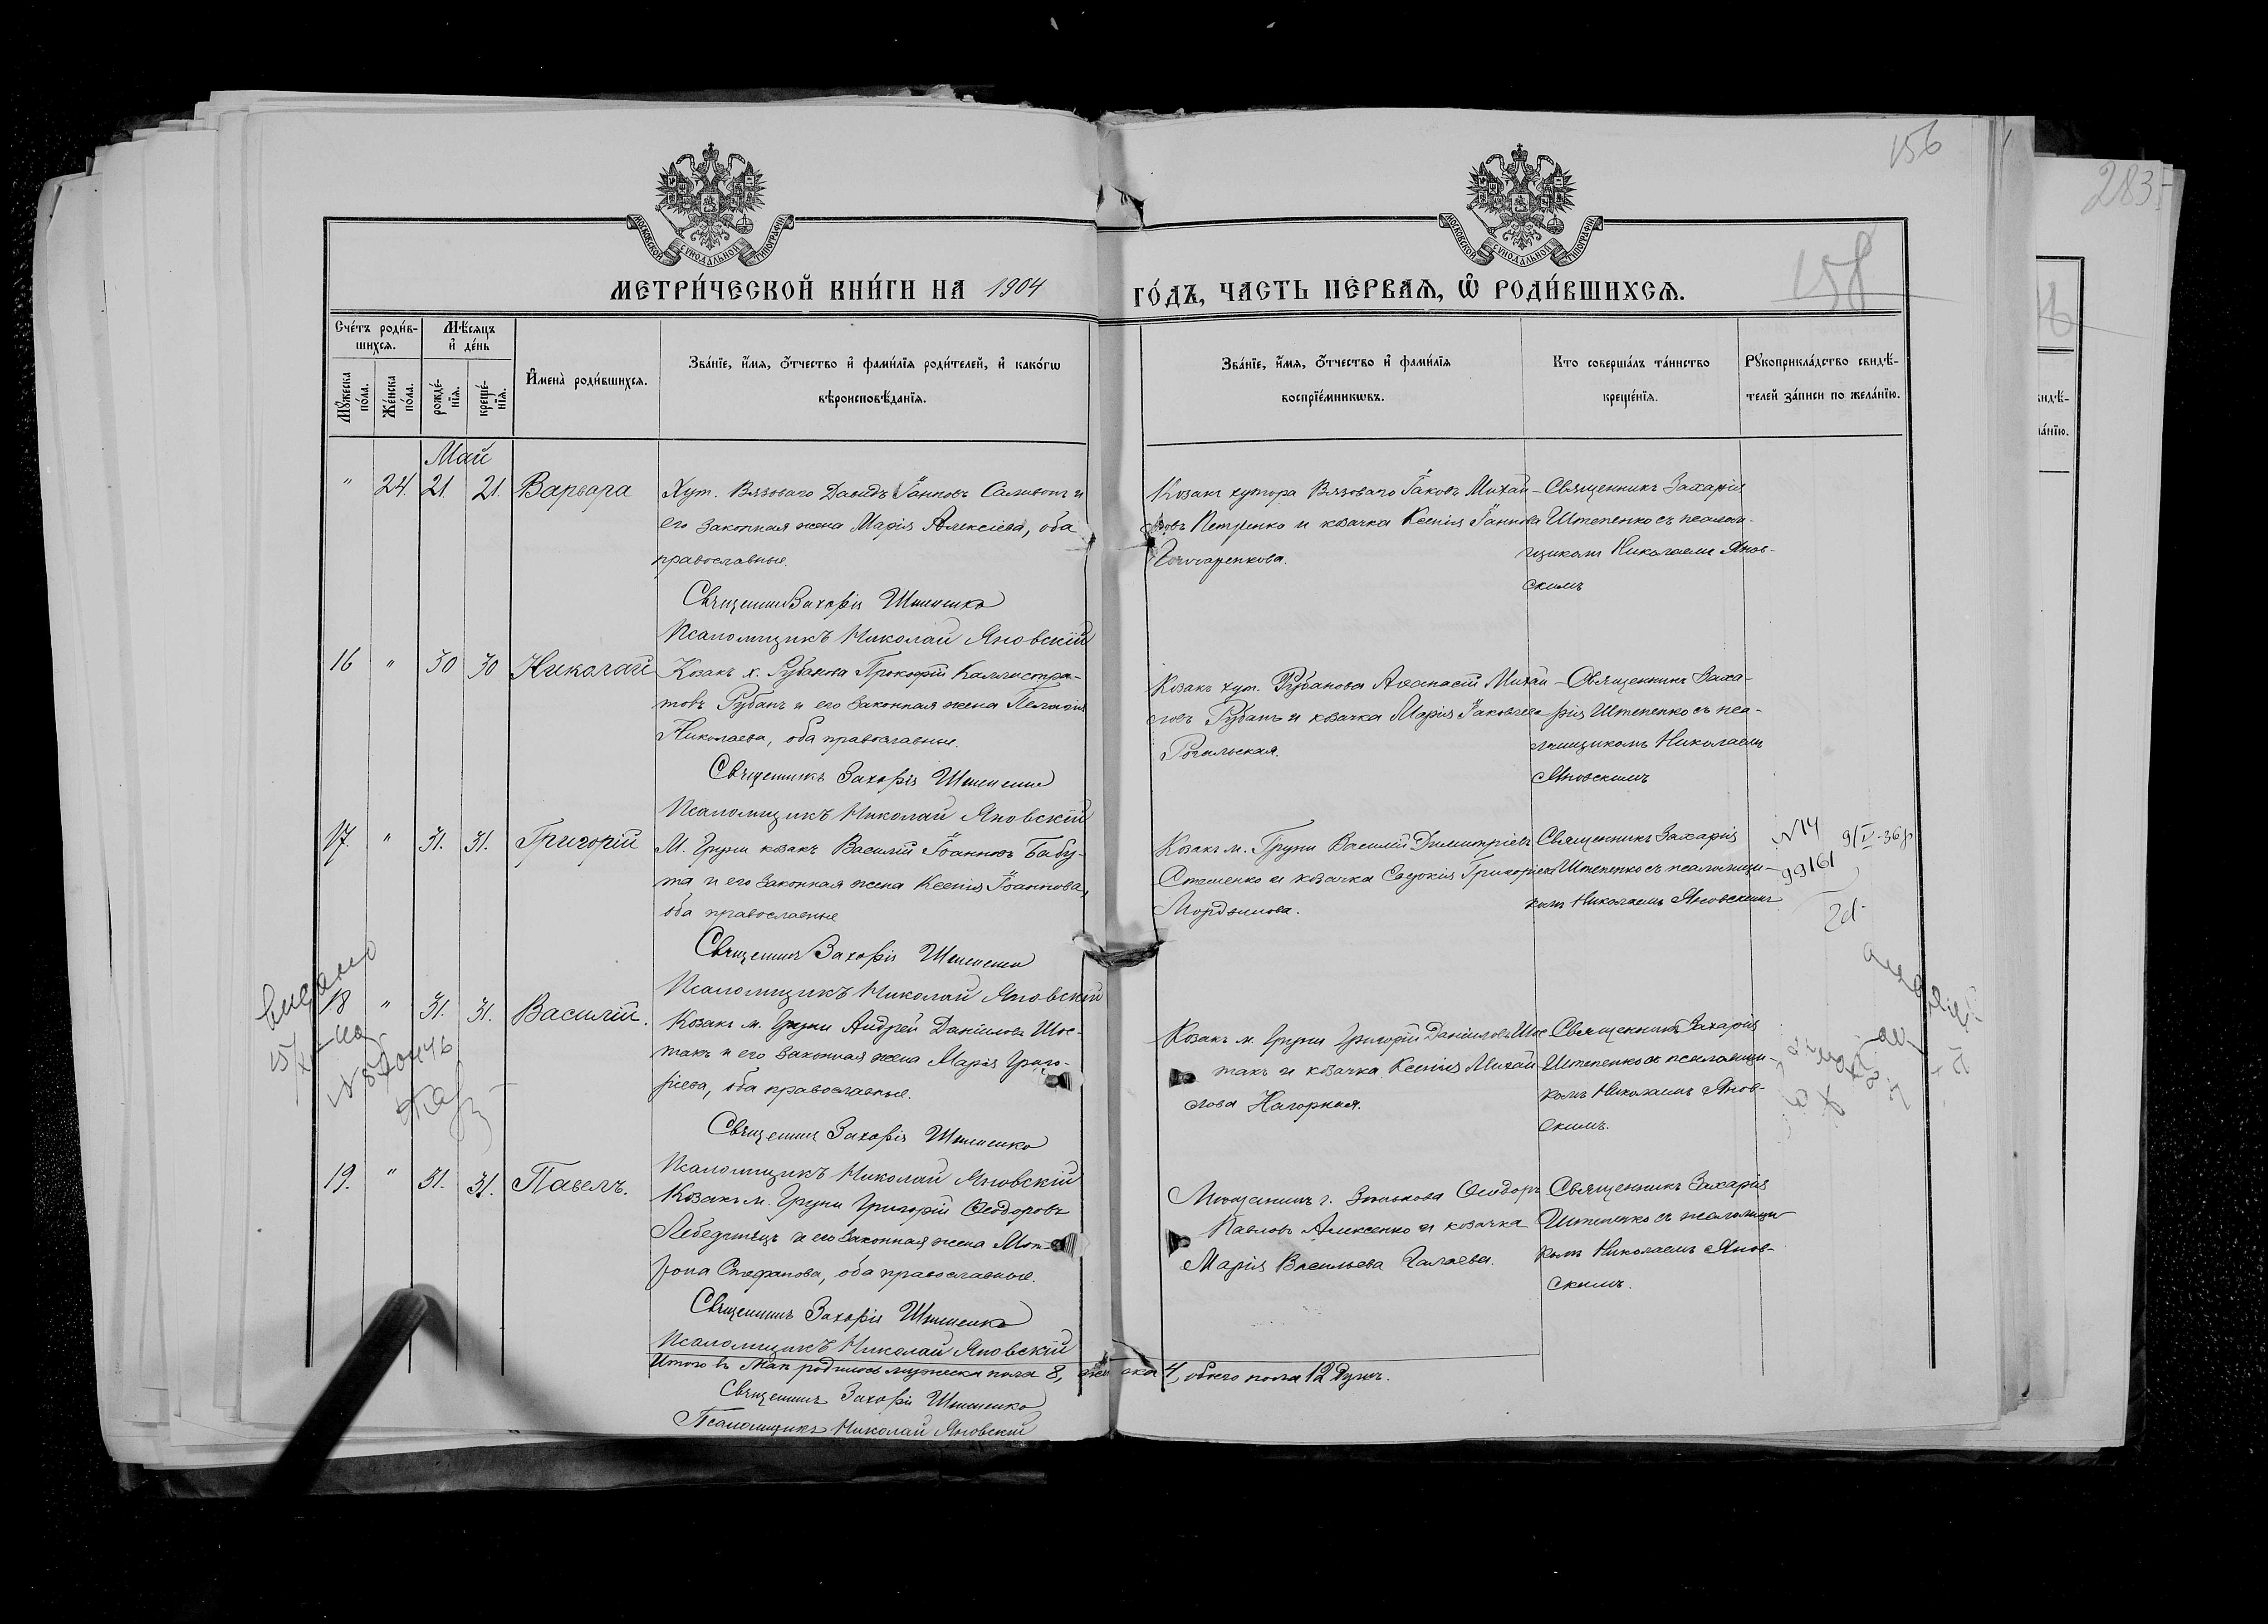 156
283
158
МОСКОВСКОЙ СѴНОДАЛЬНОЙ ТИПОГРАФІИ
МОСКОВСКОЙ СѴНОДАЛЬНОЙ ТИПОГРАФІИ
МЕТРИ́ЧЕСКОЙ КНИ́ГИ НА 1904
ГО́ДЪ, ЧАСТЬ ПЕ́РВАЯ, Ѡ РОДИ́ВШИХСЯ.
Сче́тъ роди́в-
шихся.
Мѣ́сяцъ
и҆ де́нь
Мꙋ́жеска
по́ла.
Же́нска
по́ла.
рожде́-
нїя.
креще́-
нїя.
И҆мена̀ роди́вшихся.
Зва́нїе, и҆́мя, ѻ҆́тчество и҆ фами́лїя роди́телей, и҆ како́гѡ
вѣроисповѣ́данїя.
Зва́нїе, и҆́мя, ѻ҆́тчество и҆ фами́лїя
воспрїе́мникѡвъ.
Кто соверша́лъ та́инство
креще́нїя.
Рꙋкоприкла́дство свидѣ́-
телей за́писи по жела́нїю.
Май
" 24. 21. 21. Варвара
Хут. Вязоваго Давидъ Іоанновъ Саливонъ и
его законная жена Марія Алексіева, оба
православные.
Священникъ Захарія Штепенко
Псаломщикъ Николай Яновскій
Козакъ хутора Вязоваго Іаковъ Михаи-
ловъ Петренко и козачка Ксенія Іоаннова
Гончаренкова.
Священникъ Захарія
Штепенко съ псалом-
щикомъ Николаемъ Янов-
скимъ
16 " 30 30 Николай
Козакъ х. Рубанова Прокофій Каллистра-
товъ Рубанъ и его законная жена Пелагія
Николаева, оба православные.
Священникъ Захарія Штепенко
Псаломщикъ Николай Яновскій
Козакъ хут. Рубанова Аѳанасій Михаи-
ловъ Рубанъ и козачка Марія Іаковлева
Рогульская.
Священникъ Заха-
рія Штепенко съ пса-
ломщикомъ Николаемъ
Яновскимъ
17. " 31. 31. Григорій
М. Груни козакъ Василій Іоанновъ Бабу-
та и его законная жена Ксенія Іоаннова,
оба православные
Священникъ Захарія Штепенко
Псаломщикъ Николай Яновскій
Козакъ м. Груни Василій Димитріевъ
Сташенко и козачка Евдокія Григорьева
Мордвинова.
Священникъ Захарія
Штепенко съ псаломщи-
комъ Николаемъ Яновскимъ
N 14 9/IV-36 р
99161
18 " 31. 31. Василій.
Козакъ м. Груни Андрей Даніиловъ Шос-
такъ и его законная жена Марія Григо-
рієва, оба православные.
Священникъ Захарія Штепенко
Псаломщикъ Николай Яновскій
Козакъ м. Груни Григорій Даніиловъ Шос-
такъ и козачка Ксенія Михаи-
лова Нагорная.
Священникъ Захарія
Штепенко съ псаломщи-
комъ Николаемъ Янов-
скимъ.
видано
19. " 31. 31. Павелъ.
Козакъ м. Груни Григорій Ѳеодоровъ
Лебединецъ и его законная жена Мат-
рона Стефанова, оба православные.
Священникъ Захарія Штепенко
Псаломщикъ Николай Яновскій
Мѣщанинъ г. Зинькова Ѳеодоръ
Павловъ Алексенко и козачка
Марія Васильева Галаева.
Священникъ Захарія
Штепенко съ псаломщи-
комъ Николаемъ Янов-
скимъ.
Итого въ Маѣ родилось мужеска пола 8, женска 4, обоего пола 12 душъ.
Священникъ Захарія Штепенко
Псаломщикъ Николай Яновскій